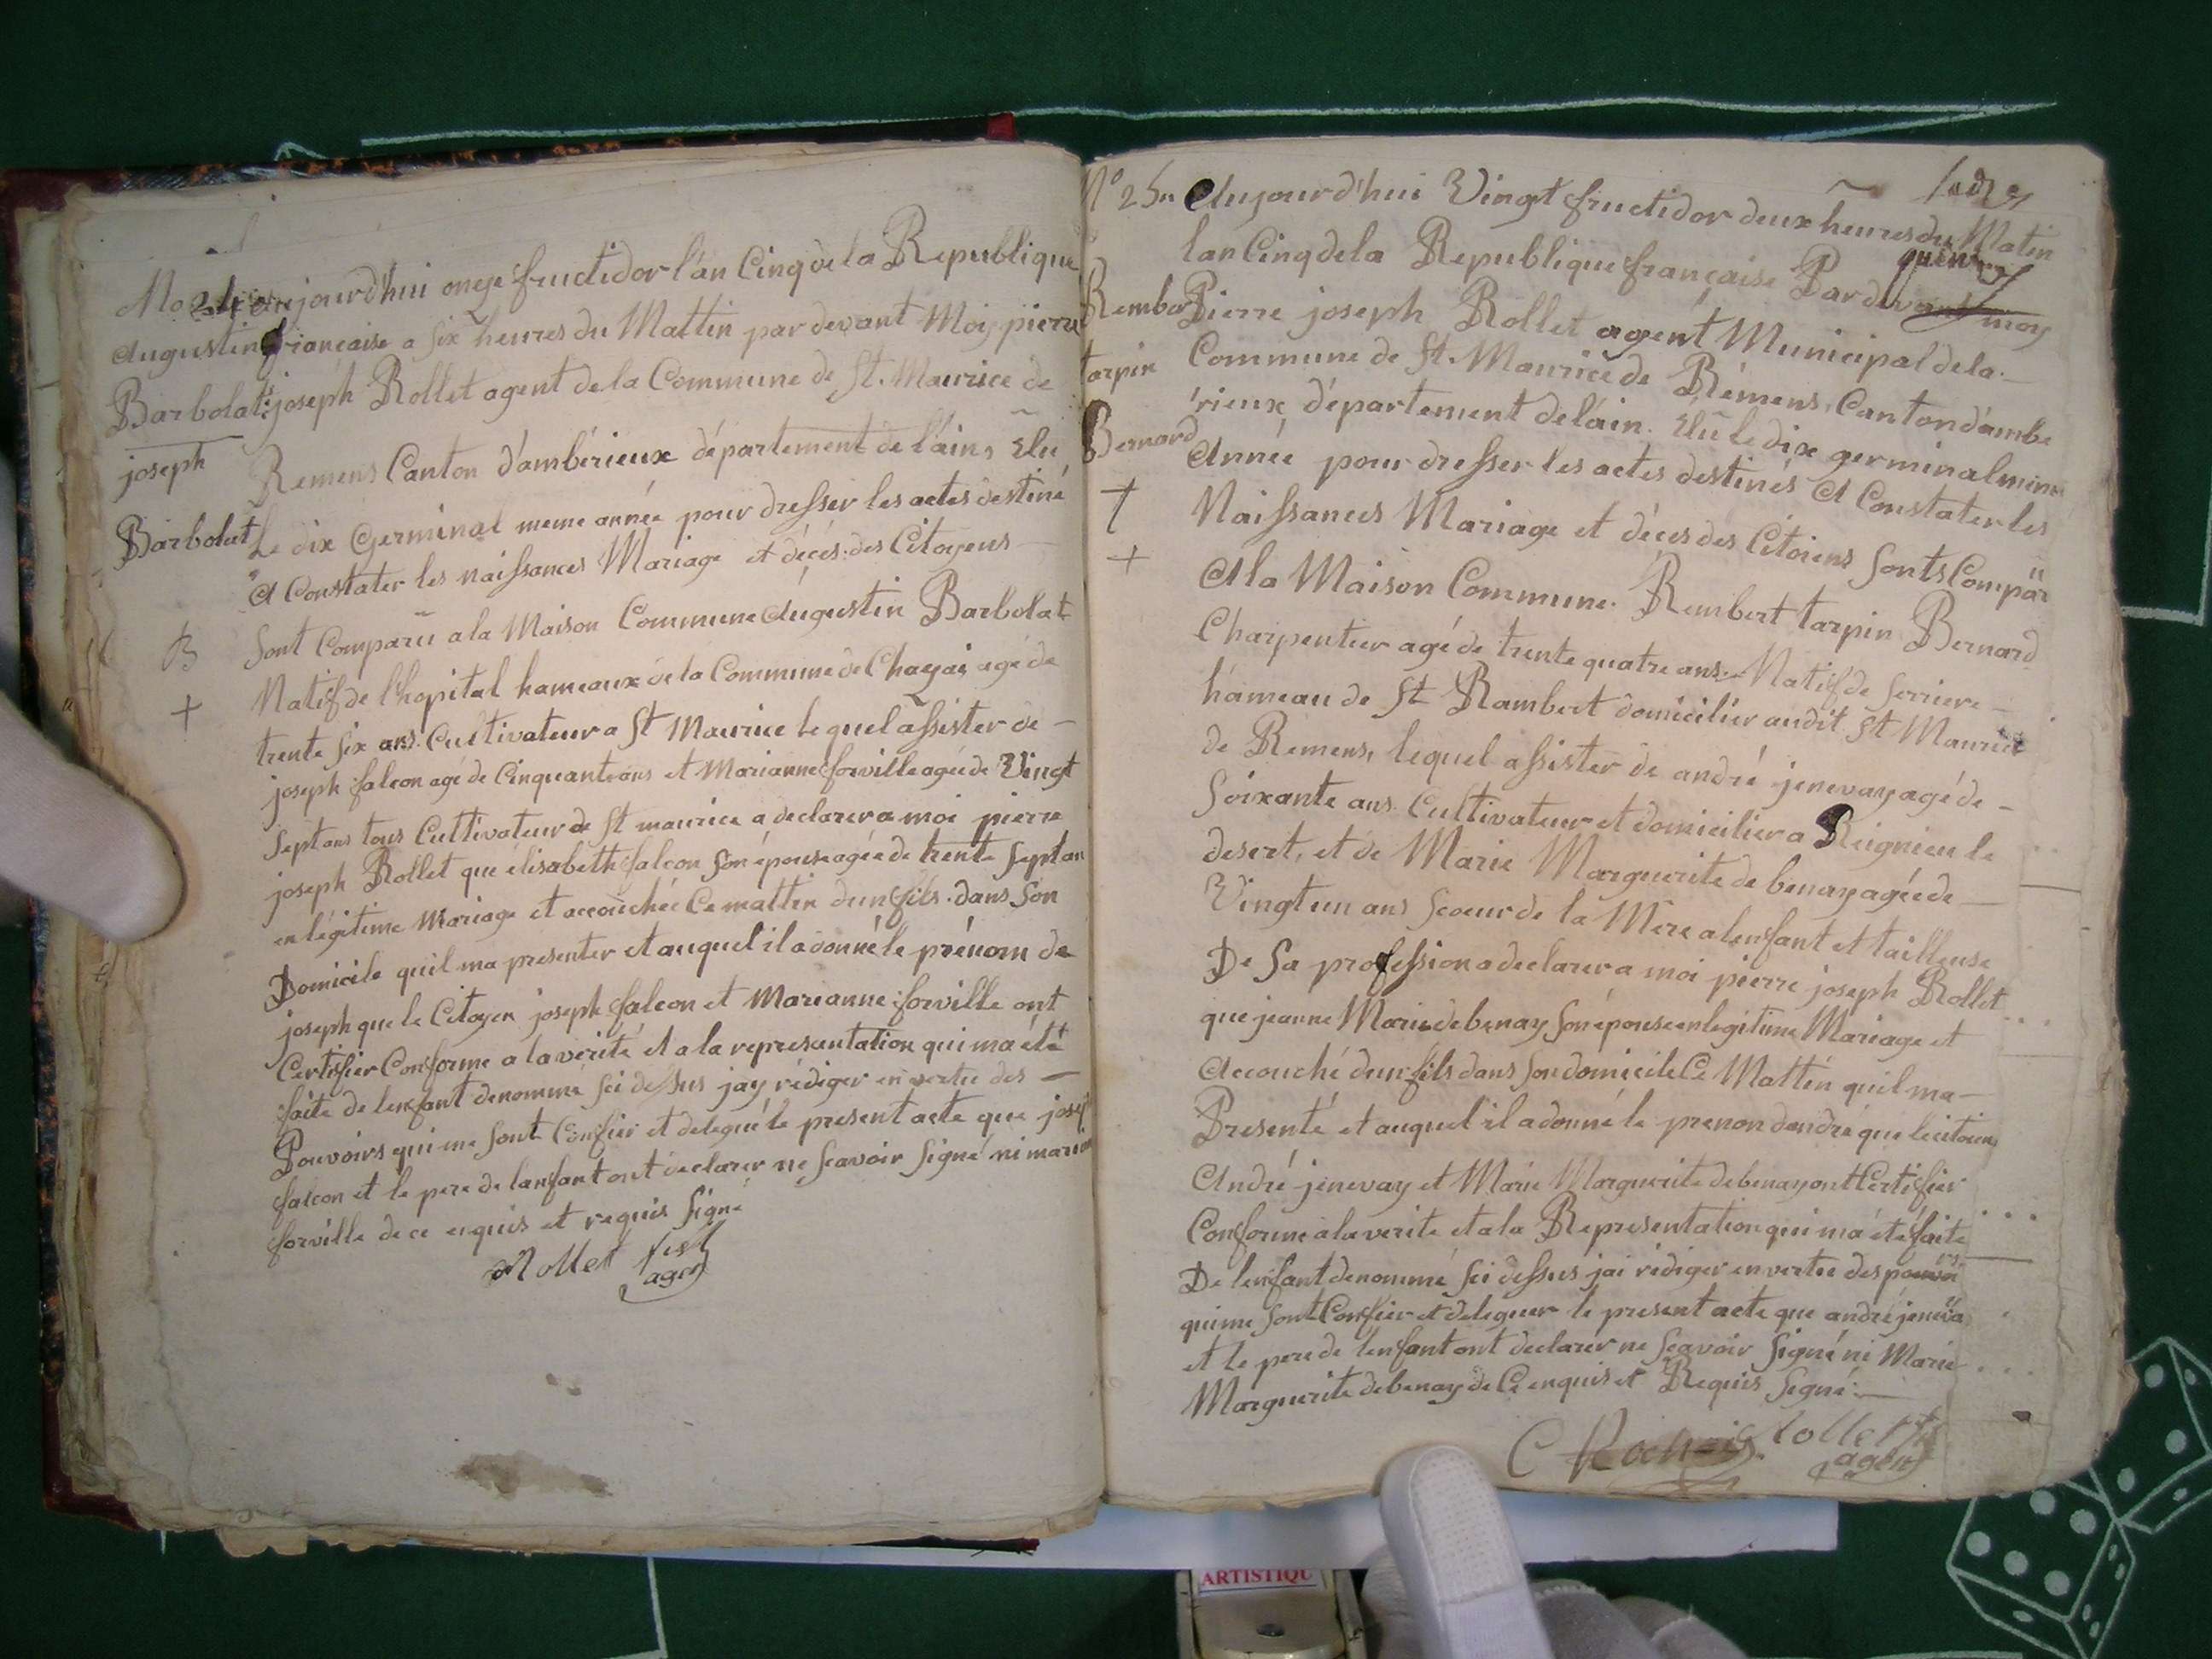 No 24 aujourd'hui onze fructidor l'an Cinq de la Republique
Augustin française a six heures du Mattin par devant Moy pierre
Barbolat joseph Rollet agent de la Commune de St. Maurice de
joseph Remens Canton d'ambérieux département de l'ain, Elu
Barbolat Le dix Germinal meme année pour dresser les actes destiné
A Constater les naissances Mariage et décés des Citoyens
B Sont Comparu a la Maison Commune Augustin Barbolat
+ Natif de l'hopital hameaux de la Commune de Chazai agé de
trente six ans Cultivateur a St Maurice lequel assister de
joseph falcon agé de Cinquante ans et Marianne forville agée de Vingt
Sept ans tous Cultivateur de St maurice a declarer a moi pierre
joseph Rollet que élisabeth falcon son épouse agée de trente sept an
en légitime Mariage et accouchée Ce mattin dun fils dans Son
Domicile quil ma presenter et auquel il a donné le prénom de
joseph que le Citoyen joseph falcon et Marianne forville ont
Certifier Conforme a la vérité et a la representation qui ma été
faite de lenfant denommé sci dessus jay rédiger en vertu des
Pouvoirs qui me sont Confier et delegué le present acte que josep
falcon et le pere de lanfant ont declarer ne scavoir signé ni marian
forville de ce enquis et requis Signé
Rollet
agent
No 25 Aujourd'hui Vingt fructidor deux heures du Matin
lan Cinq de la Republique française Par devant moy
Rember Pierre joseph Rollet agent Municipal de la
tarpin Commune de St. Maurice de Rémens, Canton d'ambe
Bernard rieux département de láin. Elu le dix germinal meme
+ Année pour dresser les actes destinés A Constater les
+ Naissances Mariage et décès des Citoiens sonts Compar
A la Maison Commune Rembert tarpin Bernard
Charpentier agé de trente quatre ans Natif de serriere
hameau de St Rambert domicilier audit St Maurice
de Remens, lequel assister de andré jenevay agé de
Soixante ans Cultivateur et domicilier a Reignieu le
desert, et de Marie Marguerite debenay agée de
Vingt un ans Scoeur de la Mére a lenfant et tailleuse
De Sa profession a declarer a moi pierre joseph Rollet
que jeanne Marie debenay son épouse en legitime Mariage et
Accouché dun fils dans son domicile Ce Mattin quil ma
Presenté et auquel il a donné le prenon dandré que le citoien
André jenevay et Marie Marguerite debenay ont Certifier
Conforme a la verite et a la Representation qui ma été faite
De lenfant denommé sci dessus jai rédiger en vertue des pouvoirs
qui me sont Confier et deleguer le present acte que andré jeneva
et le pere de lenfant ont declarer ne scavoir signé ni Marie
Marguerite debenay de Ce enquis et Requis Signé
Rollet
agent
ARTISTIQU